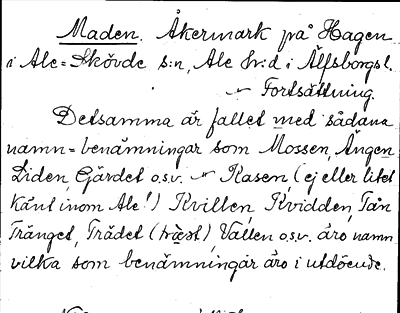 Maden. Åkermark på Hagen
i Ale=Skövde s:n, Ale hr:d i Älfsborgs l.
Fortsättning.
Detsamma är fallet med sådana
namn=benämningar som Mossen, Ängen
Liden, Gärdet o.s.v. Rasen, (ej eller litet
känt inom Ale!) Kvillen, Kvidden, Tån
Trånget, Trädet (träest), Vallen o.s.v. äro namn
vilka som benämningar äro i utdöende.